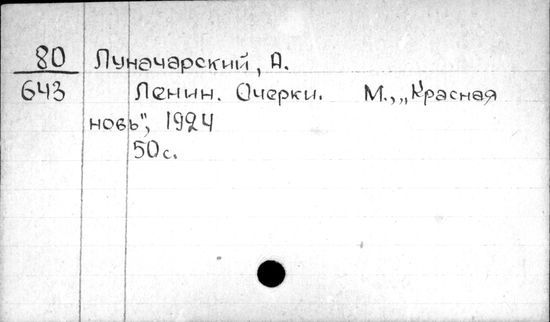 80 Луначарский, А.
643 Ленин. Очерки. М., „Красная
новь", 1924
50 с.